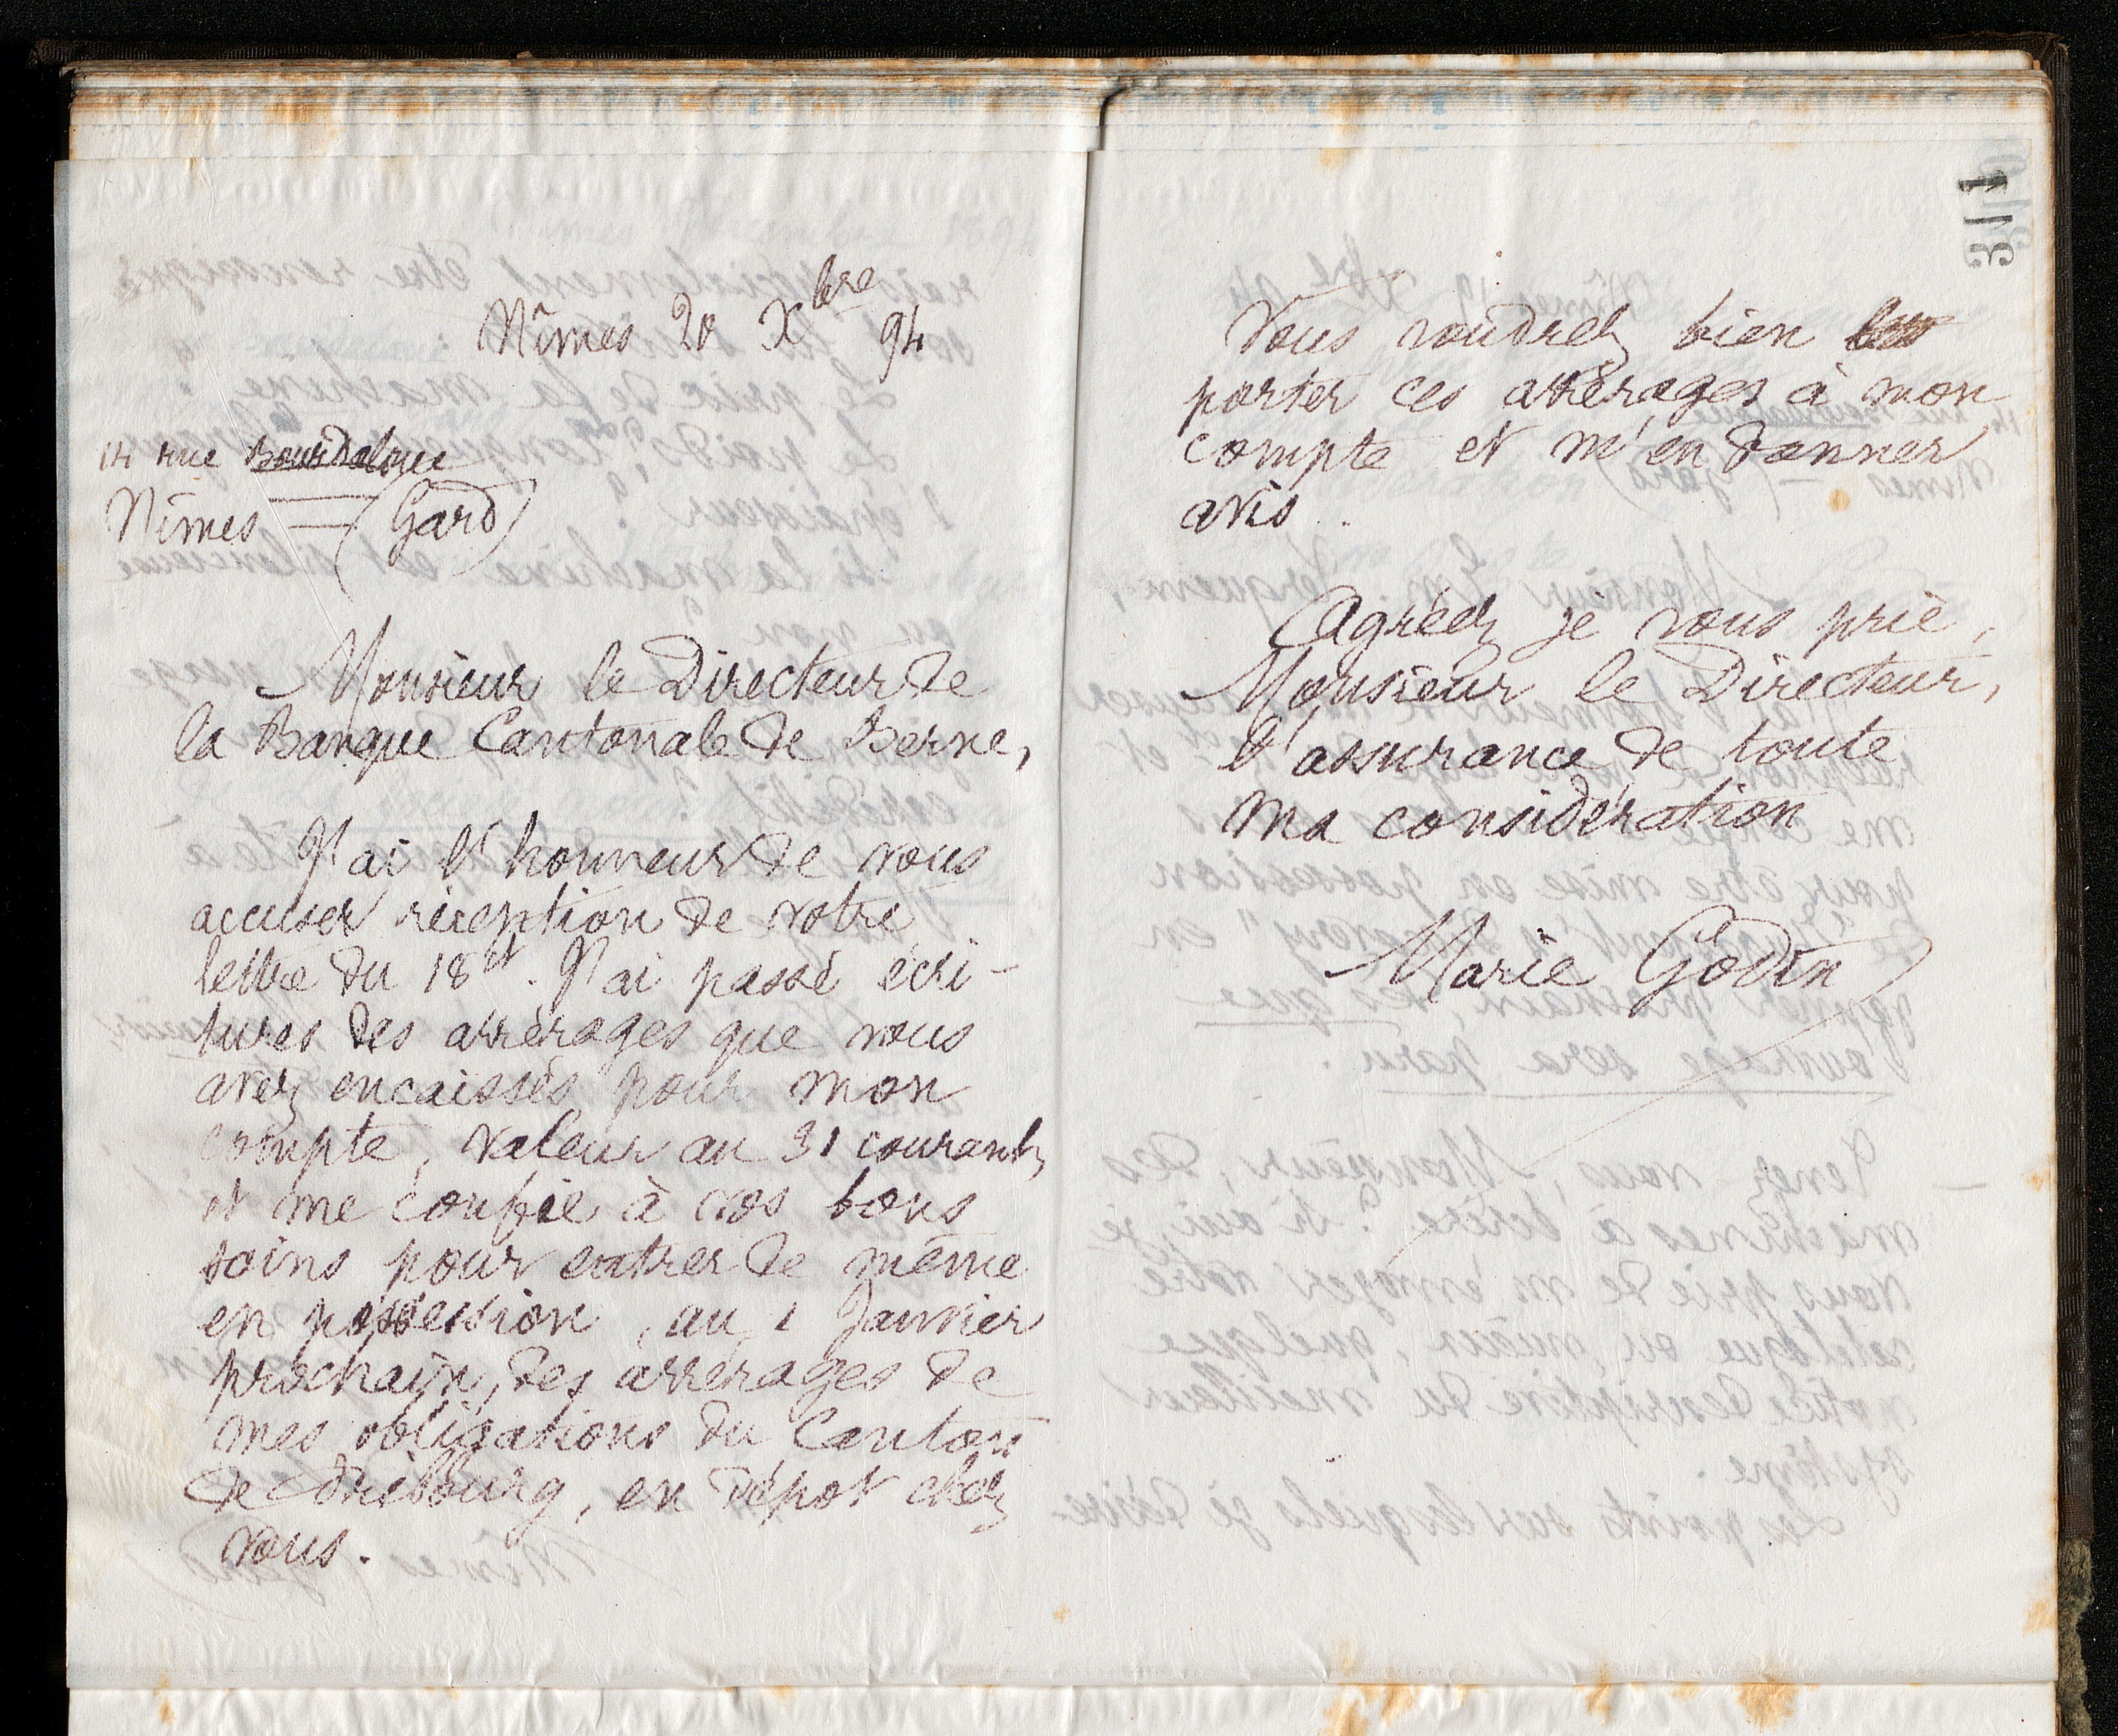 Nîmes 20 Xbre 94
14 rue Bourdaloue
Nîmes — (Gard)
Monsieur le Directeur de
la Banque Cantonale de Berne,
J'ai l'honneur de vous
accuser réception de votre
lettre du 18 ct. J'ai passé écri-
tures des arrérages que vous
avez encaissés pour mon
compte, valeur au 31 courant,
et me confie à vos bons
soins pour entrer de même
en possession, au 1 Janvier
prochain, des arrérages de
mes obligations du Canton
de Fribourg, en dépôt chez
vous.
311
Vous voudrez bien
porter ces arrérages à mon
compte et m'en donner
avis.
Agréez je vous prie,
Monsieur le Directeur,
l'assurance de toute
ma considération
Marie Godin